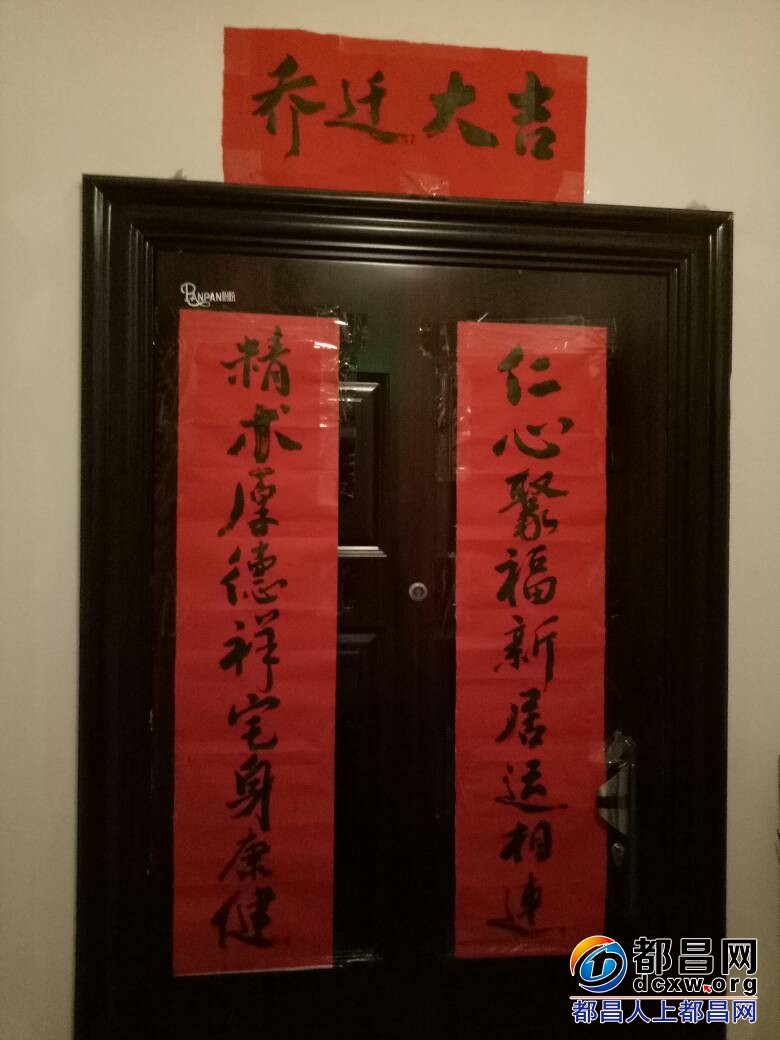 乔迁大吉
PANPAN盼盼
仁心聚福新居运相连
精术厚德祥宅身康健
都昌网
dcxw.org
都昌人上都昌网